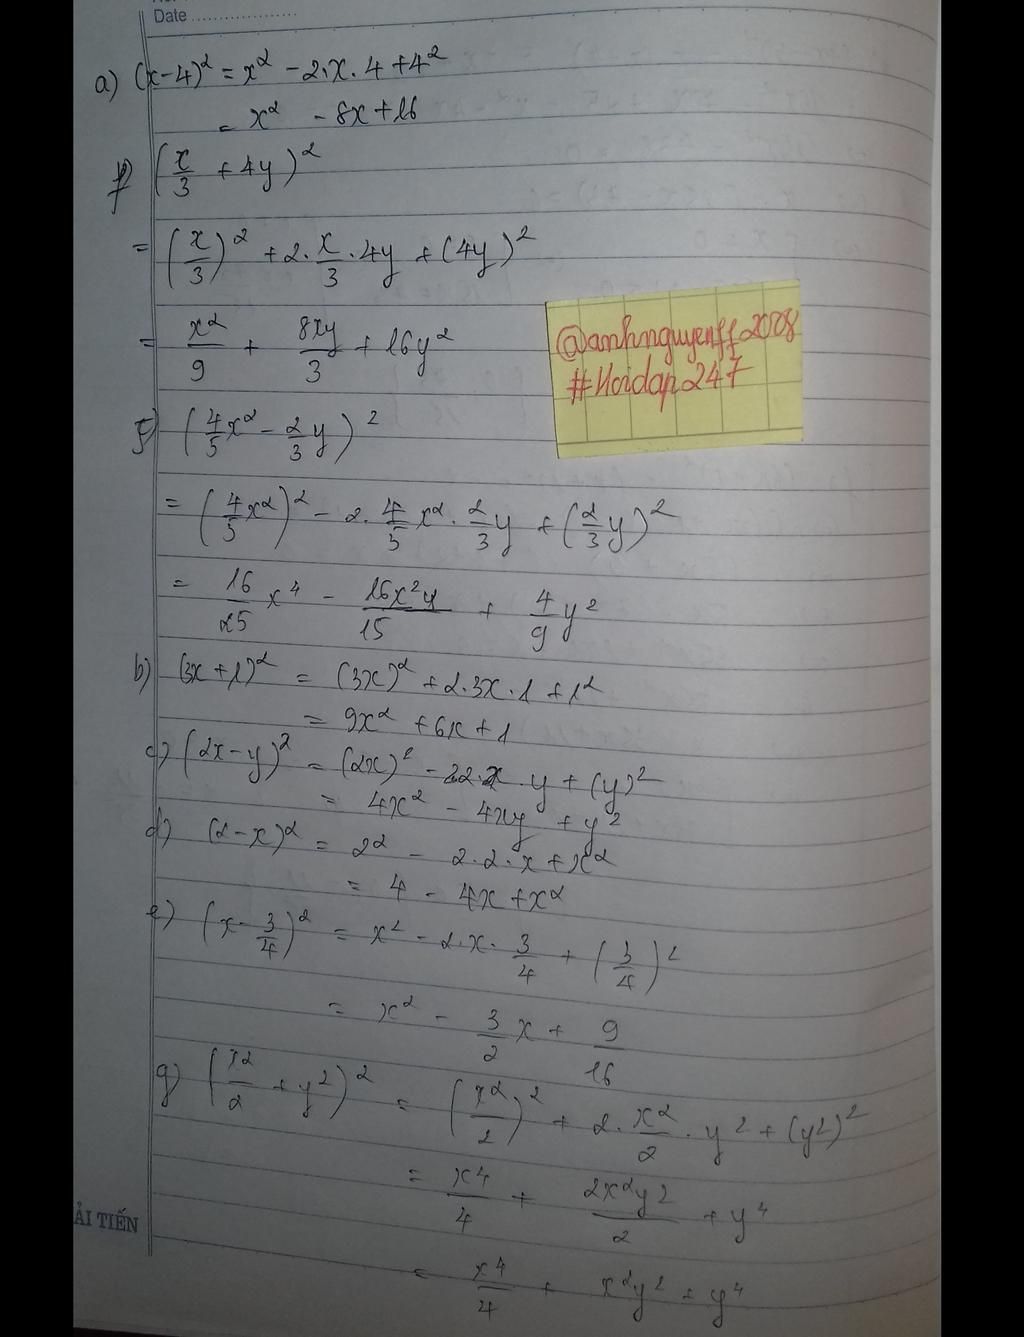 Date ..................
a) (x-4)² = x² - 2.x.4 + 4²
= x² - 8x + 16
f) (x/3 + 4y)²
= (x/3)² + 2.x/3.4y + (4y)²
= x²/9 + 8xy/3 + 16y²
@anhnguyenff2008
#Hoidap247
(4/5x² - 2/3y)²
= (4/5x²)² - 2.4/5x².2/3y + (2/3y)²
= 16/25x⁴ - 16x²y/15 + 4/9y²
b) (3x+1)² = (3x)² + 2.3x.1 + 1²
= 9x² + 6x + 1
c) (2x-y)² = (2x)² - 2.2x.y + (y)²
= 4x² - 4xy + y²
d) (2-x)² = 2² - 2.2.x + x²
= 4 - 4x + x²
e) (x - 3/4)² = x² - 2.x.3/4 + (3/4)²
= x² - 3/2x + 9/16
g) (x²/2 + y²)² = (x²/2)² + 2.x²/2.y² + (y²)²
= x⁴/4 + 2x²y²/2 + y⁴
ẢI TIẾN
= x⁴/4 + x²y² + y⁴